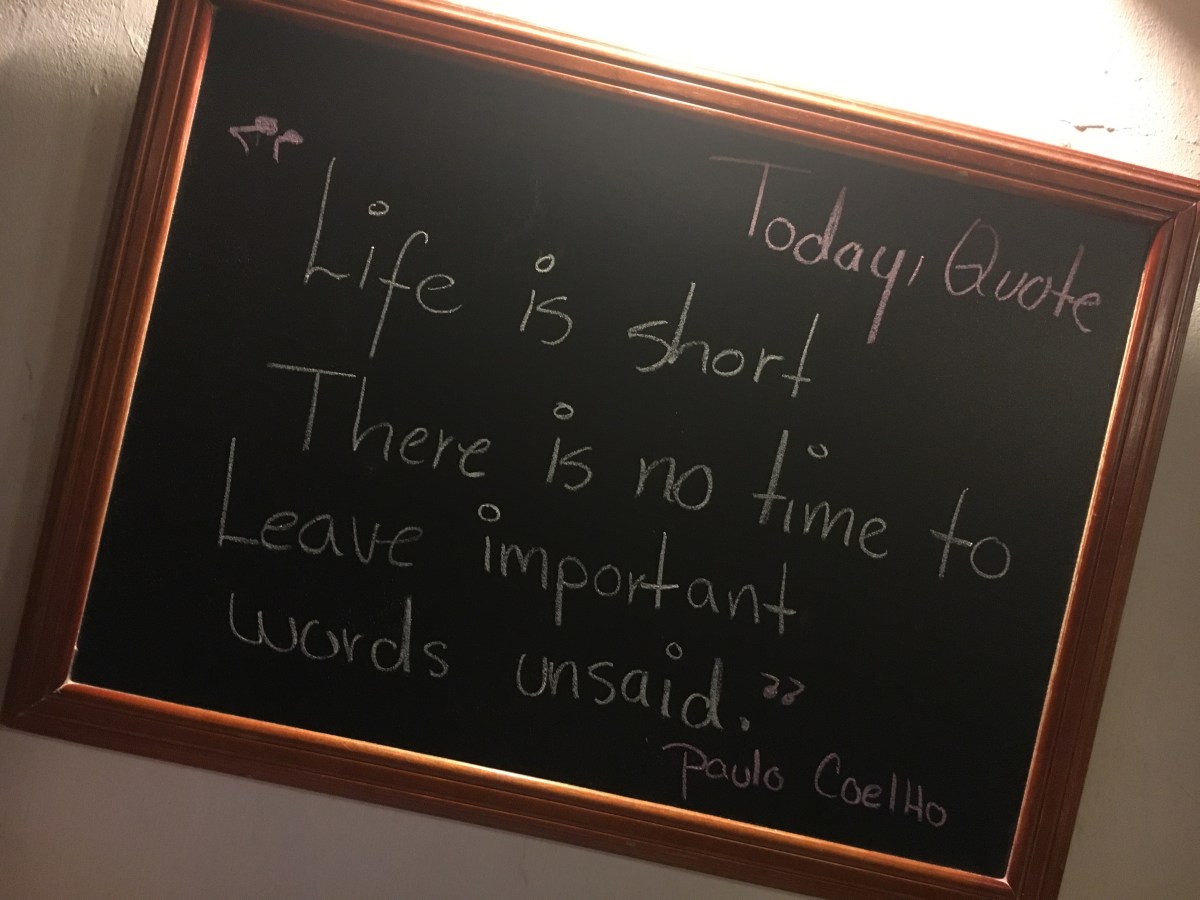 Today, Quote
“Life is short
There is no time to
Leave important
words unsaid.”
Paulo Coelho